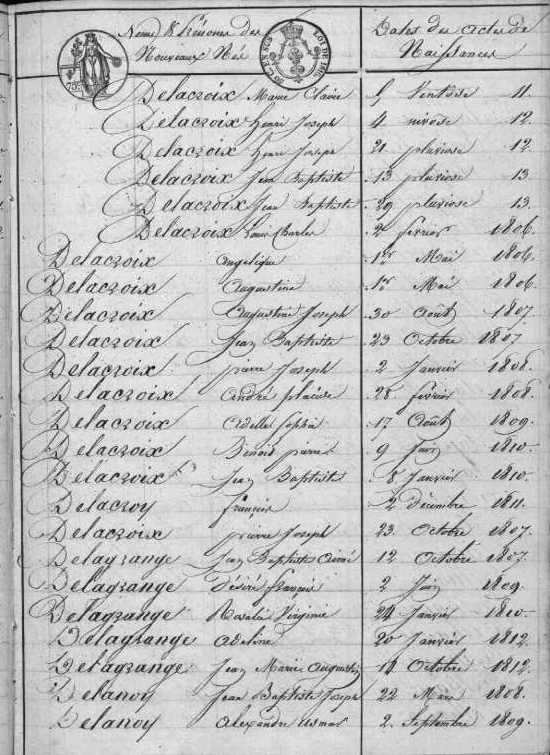 Noms & Prénoms des Dates des actes de
Nouveaux Nés Naissances
Delacroix Marie Claire 5 Ventôse 11.
Delacroix Henri Joseph 4 nivose 12.
Delacroix Henri Joseph 21 pluviose 12.
Delacroix Jean Baptiste 13 pluviose 13
Delacroix Jean Baptiste 29 pluviose 13.
Delacroix Louis Charles 2 fevrier 1806.
Delacroix angelique 1er Mai 1806.
Delacroix Augustine 1er Mai 1806
Delacroix Augustine Joseph 30 Août 1807.
Delacroix Jean Baptiste 23 Octobre 1807
Delacroix pierre Joseph 2 Janvier 1808.
Delacroix André 28 fevrier 1808.
Delacroix Adelle Sophie 17 Août 1809.
Delacroix Benoit pierre 9 Juin 1810.
Delacroix Jean Baptiste 8 Janvier 1810.
Delacroy françois 2 Décembre 1811.
Delacroix pierre Joseph 23 Octobre 1807.
Delagrange Jean Baptiste Aimé 12 Octobre 1807.
Delagrange Désiré françois 2 Juin 1809.
Delagrange Rosalie Virginie 24 Janvier 1810.
Delagrange adeline 20 Janvier 1812
Delagrange Jean Marie Augustin 14 Octobre 1812.
Delanoy Jean Baptiste Joseph 22 Mars 1808.
Delanoy alexandre 2. Septembre 1809.